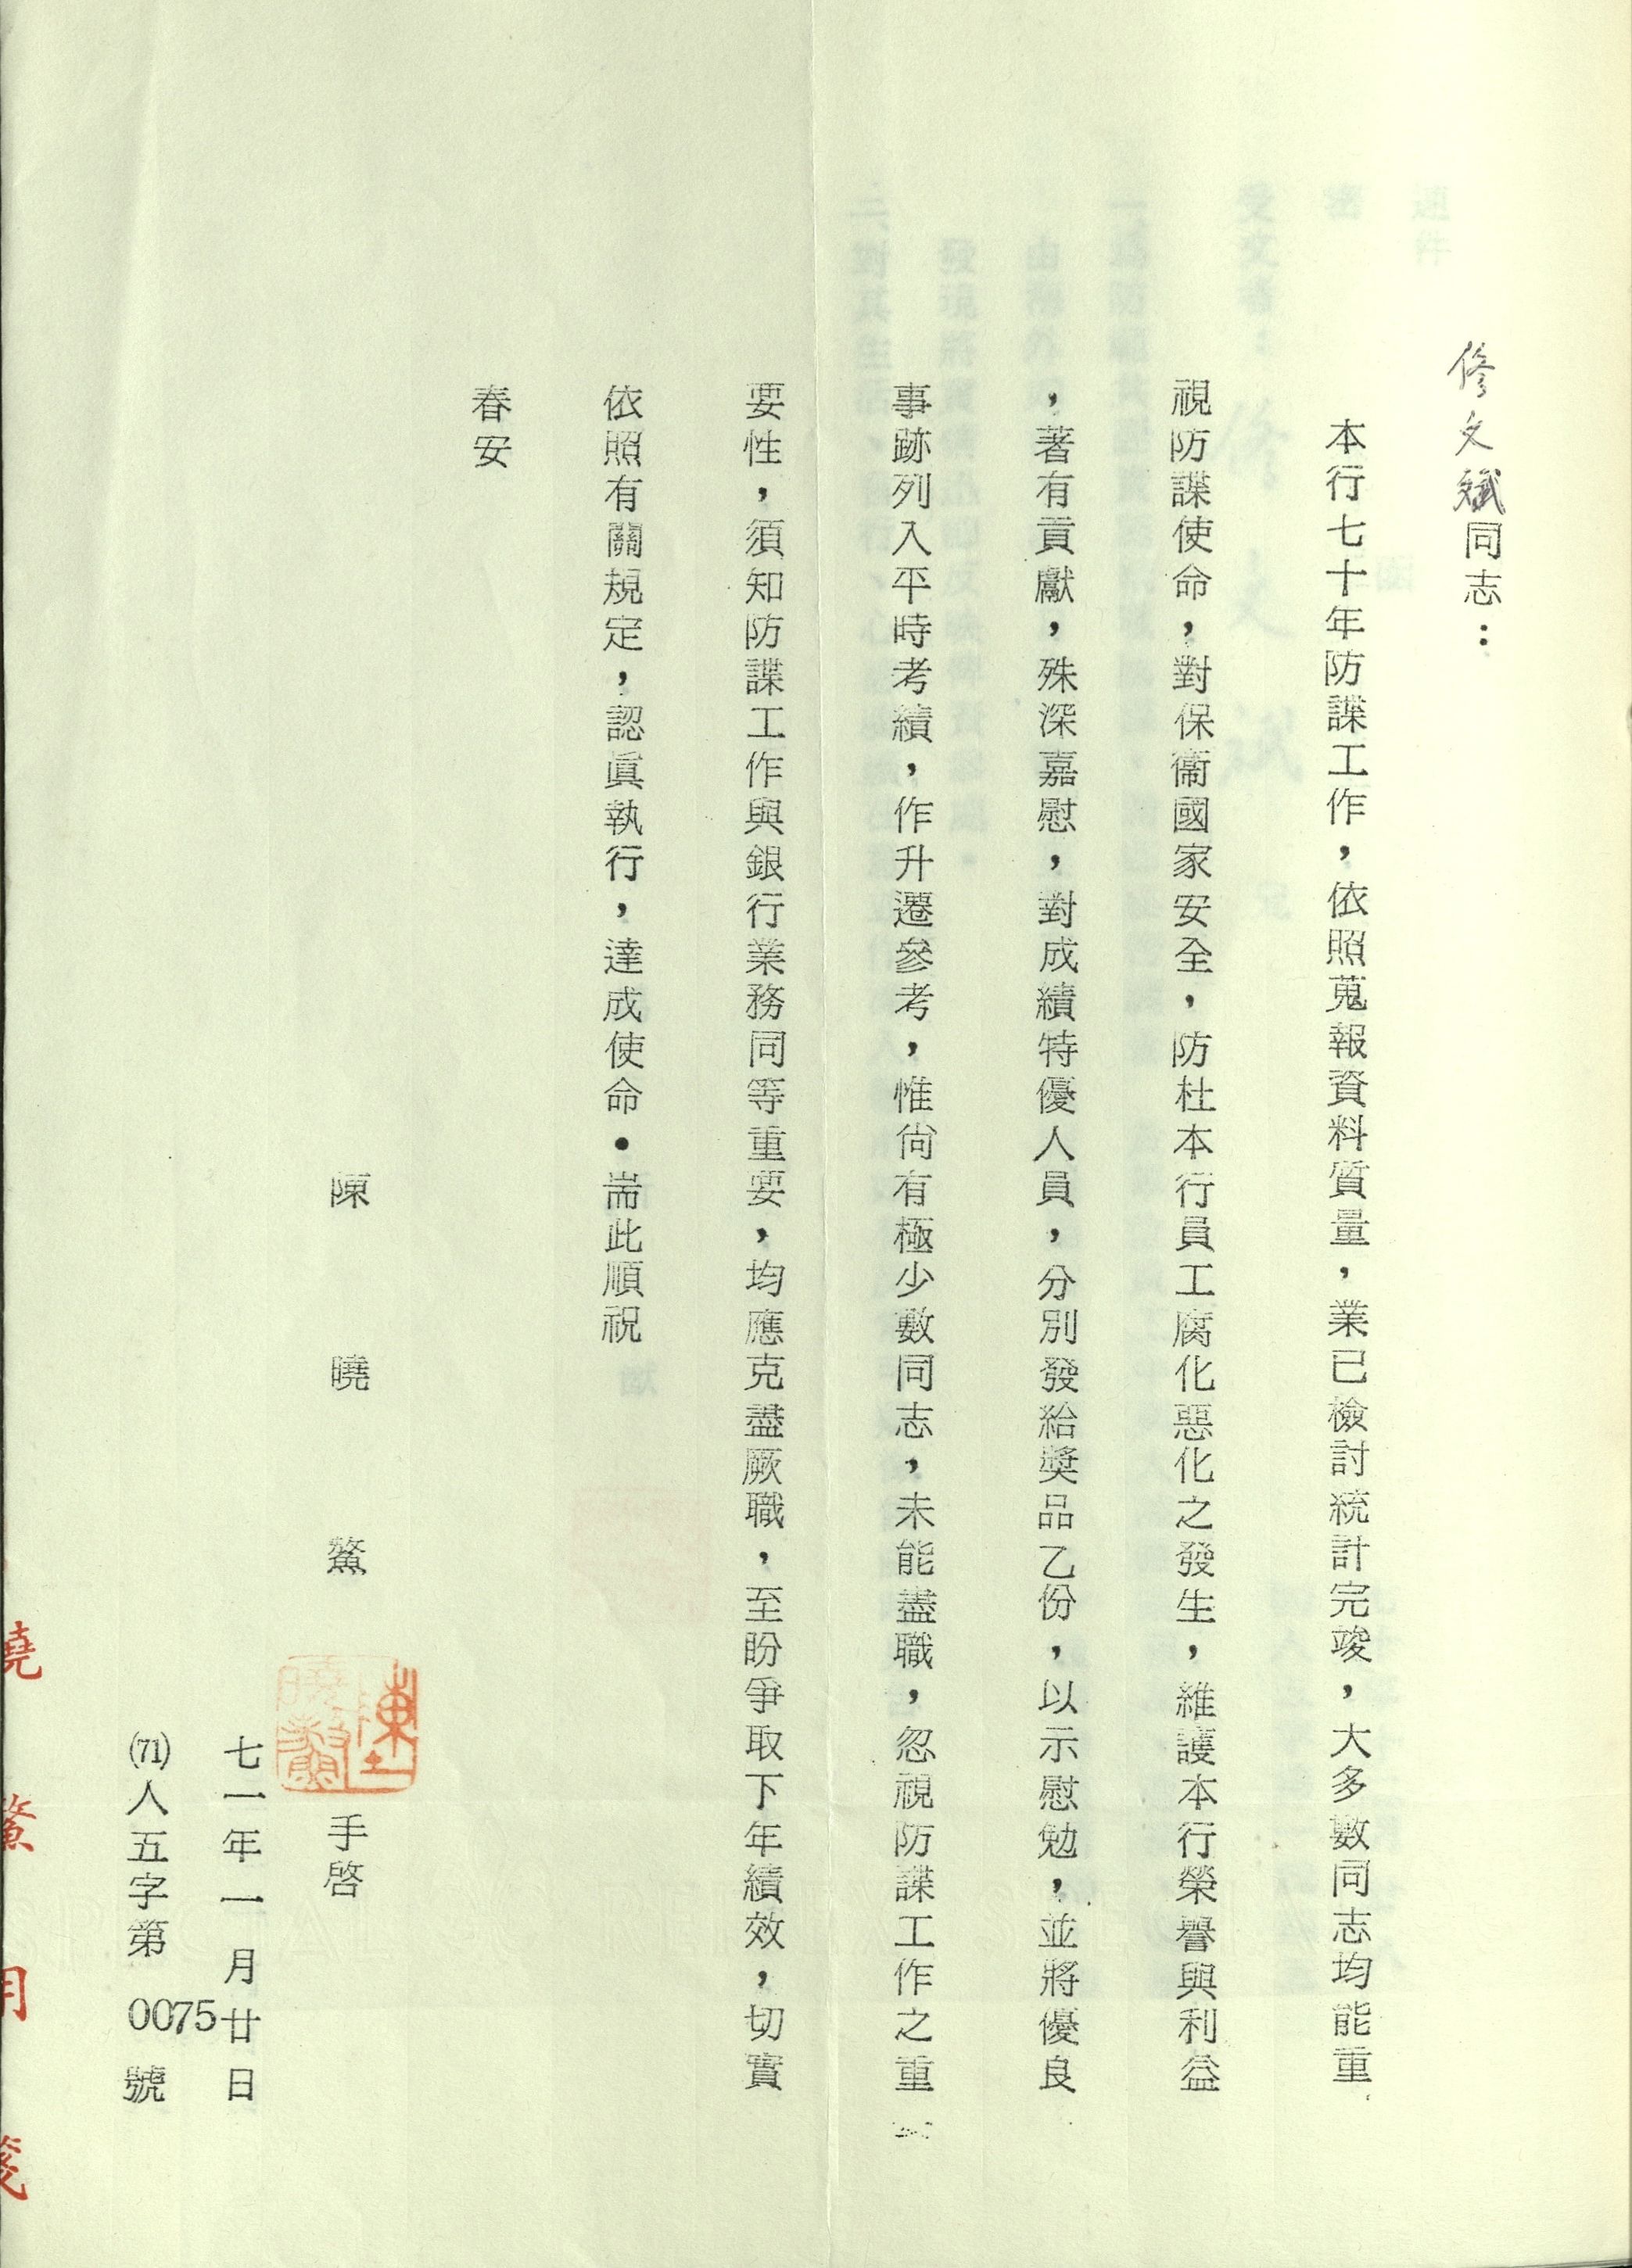 修文斌同志：
本行七十年防諜工作，依照蒐報資料質量，業已檢討統計完竣，大多數同志均能重
視防諜使命，對保衞國家安全，防杜本行員工腐化惡化之發生，維護本行榮譽與利益
，著有貢獻，殊深嘉慰，對成績特優人員，分別發給獎品乙份，以示慰勉，並將優良
事跡列入平時考績，作升遷參考，惟尙有極少數同志，未能盡職，忽視防諜工作之重
要性，須知防諜工作與銀行業務同等重要，均應克盡厥職，至盼爭取下年績效，切實
依照有關規定，認眞執行，達成使命•耑此順祝
春安
陳曉鰲 手啓
陳曉鰲
七一年一月廿日
(71)人五字第0075號
曉鰲用箋